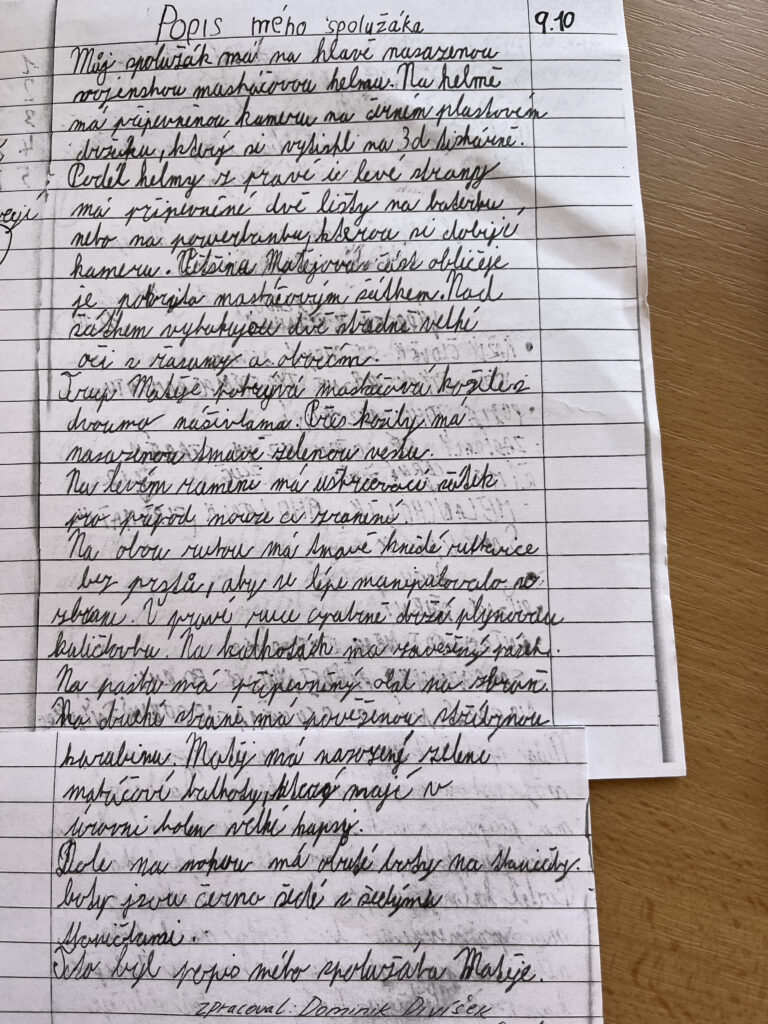 Popis mého spolužáka
9.10
Můj spolužák má na hlavě nasazenou
vojenskou maskáčovou helmu. Na helmě
má připevněnou kameru na černém plastovém
držáku, který si vytiskl na 3d tiskárně.
Podél helmy z pravé i z levé strany
má připevněné dvě lišty na baterku,
nebo na powerbanku, kterou si dobijí
kameru. Většina Matějová část obličeje
je pokryta maskáčovým šátkem. Nad
šátkem vykukujou dvě středně velké
oči s řasamy a obočím.
Trup Matěje pokrývá maskáčová košile s
dvoumo nášivkama. Přes košily má
nasazenou tmavě zelenou vestu.
Na levém rameni má uštrcovací
pro případ nouze či zranění
Na obou rukou má tmavě hnědé rukavice
bez prstů, aby se lépe manipulovalo se
zbraní. V pravé ruce opatrně drží plynovou
kuličkovku. Na kalhotách má zavěšený pásek.
Na pasku má připevněný na zbraň.
Na druhé straně má pověšenou stříbrnou
karabinu. Matěj má nazozené zelené
matáčové kalhoty, které mají v
úrovni holen velké kapsy.
Dole na nohou má obuté boty na tkaničky.
boty jsou černo šedé s šedýma
tkaničkami.
Toto byl popis mého spolužáka Matěje.
zpracoval: Dominik Divíšek